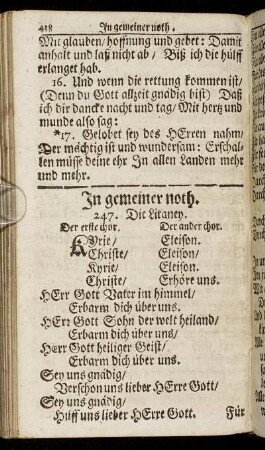 438 In gemeiner noth.
Mit glauben/ hoffnung und gebet: Damit
anhalt und laß nicht ab/ Biß ich die hülff
erlanget hab.
16. Und wenn die rettung kommen ist/
(Denn du Gott allzeit gnädig bist) Daß
ich dir dancke nacht und tag/ Mit hertz und
munde also sag:
*17. Gelobet sey des HErren nahm/
Der mächtig ist und wundersam: Erschal-
len müsse deine ehr In allen Landen mehr
und mehr.
In gemeiner noth.
247. Die Litaney.
Der erste chor. Der ander chor.
KYrie/ Eleison.
Christe/ Eleison/
Kyrie/ Eleison.
Christe/ Erhöre uns.
HErr Gott Vater im himmel/
Erbarm dich über uns.
HErr Gott Sohn der welt heiland/
Erbarm dich über uns.
HErr Gott heiliger Geist/
Erbarm dich über uns.
Sey uns gnädig/
Verschon uns lieber HErre Gott/
Sey uns gnädig/
Hülff uns lieber HErre Gott. Für